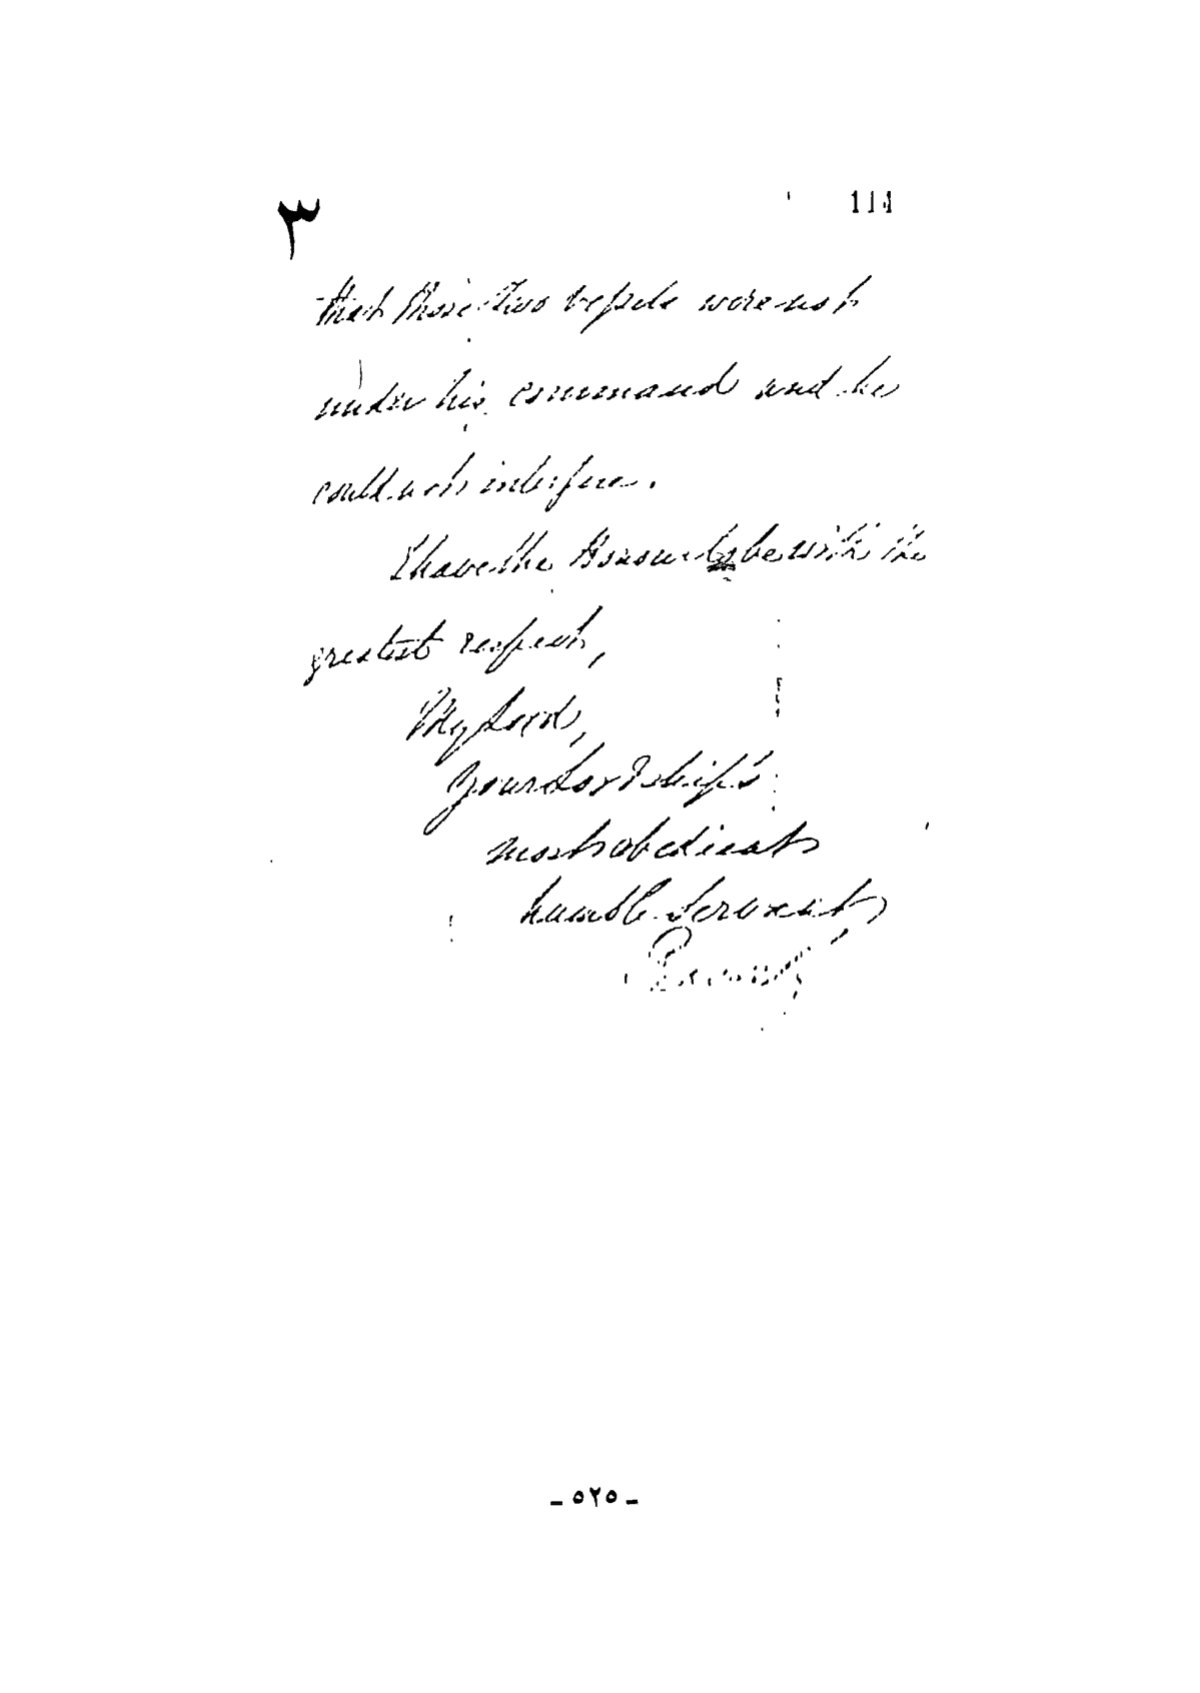 ٣
114
that those two vessels were not
under his command and he
could not interfere.
I have the Honour to be with the
greatest respect,
My Lord,
Your Lordship's
most obedient
humble Servant
- ٥٢٥ -